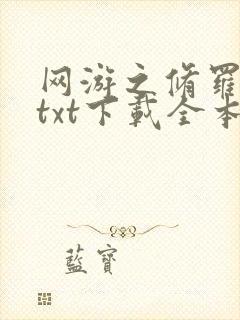 网游之脩羅
txt下載全本
藍寶